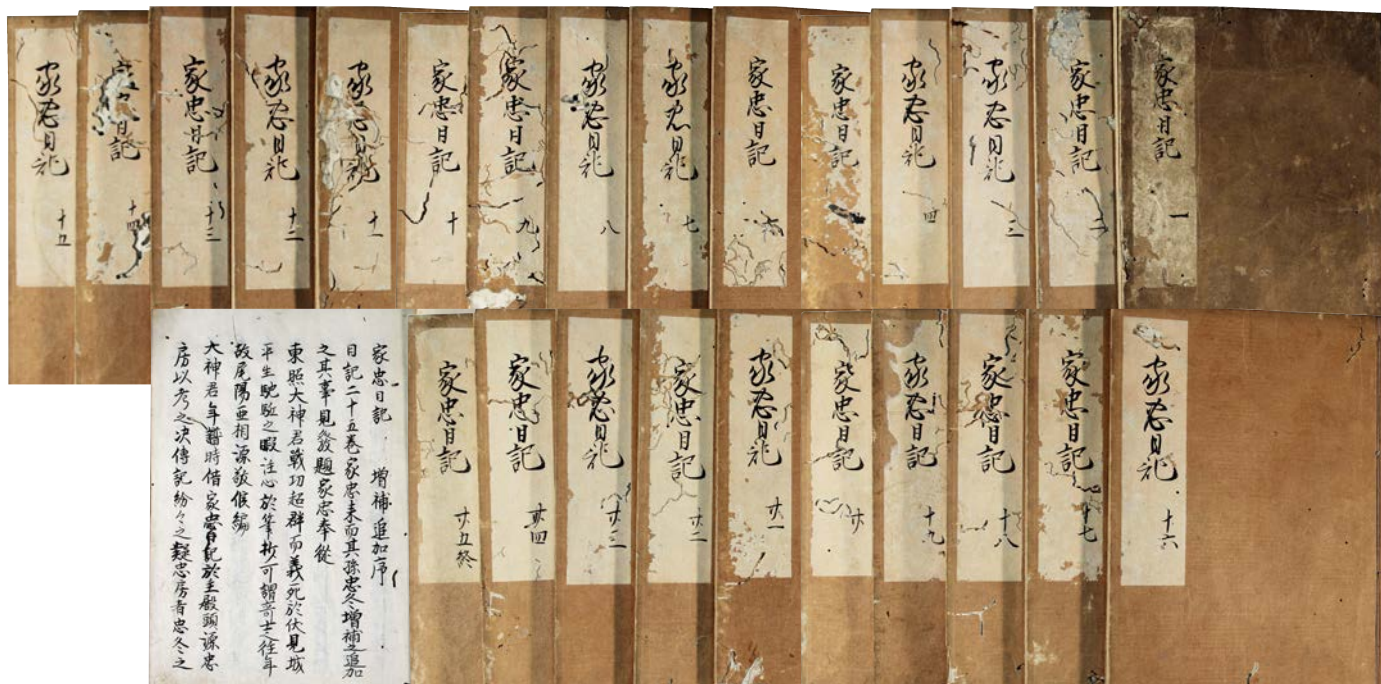 家忠日記 一
家忠日記 二
家忠日記 三
家忠日記 四
家忠日記
家忠日記 六
家忠日記 七
家忠日記 八
家忠日記 九
家忠日記 十
家忠日記 十一
家忠日記 十二
家忠日記 十三
家忠日記 十四
家忠日記 十五
家忠日記 十六
家忠日記 十七
家忠日記 十八
家忠日記 十九
家忠日記 廿
家忠日記 廿一
家忠日記 廿二
家忠日記 廿三
家忠日記 廿四
家忠日記 廿五終
家忠日記 増補追加序
日記二十五巻家忠未而其孫忠冬増補之追加
之其事見發題家忠奉従
東照大神君戰功超群而義死於伏見城
平生馳驅之暇注心於筆. 可謂奇士之往年
故尾陽亜相源敬候編
大神君年譜時借家忠日記於主殿頭源忠
房以考之决傳記紛々之疑忠房者忠冬之